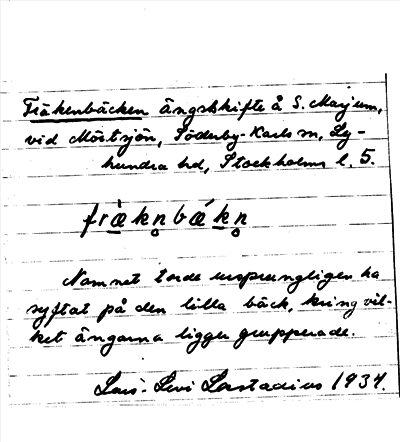 Fräkenbäcken ängsskifte å S. Marjum,
vid Mörtsjön, Söderby-Karls sn, Ly-
hundra hd, Stockholms l. 5.
fræ̀kn̥bǽkn̥
Namnet torde ursprungligen ha
syftat på den lilla bäck, kring vil-
ket ängarna ligger grupperade.
Lars-Levi Læstadius 1934.